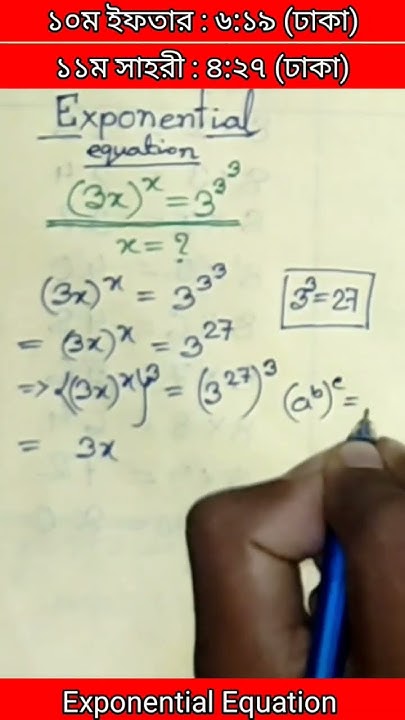 ১০ম ইফতার : ৬:১৯ (ঢাকা)
১১ম সাহরী : ৪:২৭ (ঢাকা)
Exponential
equation
(3x)^x = 3^3^3
x = ?
(3x)^x = 3^3^3
3^3 = 27
= (3x)^x = 3^27
=> {(3x)^x}^3 = (3^27)^3 (a^b)^c =
= 3x
Exponential Equation